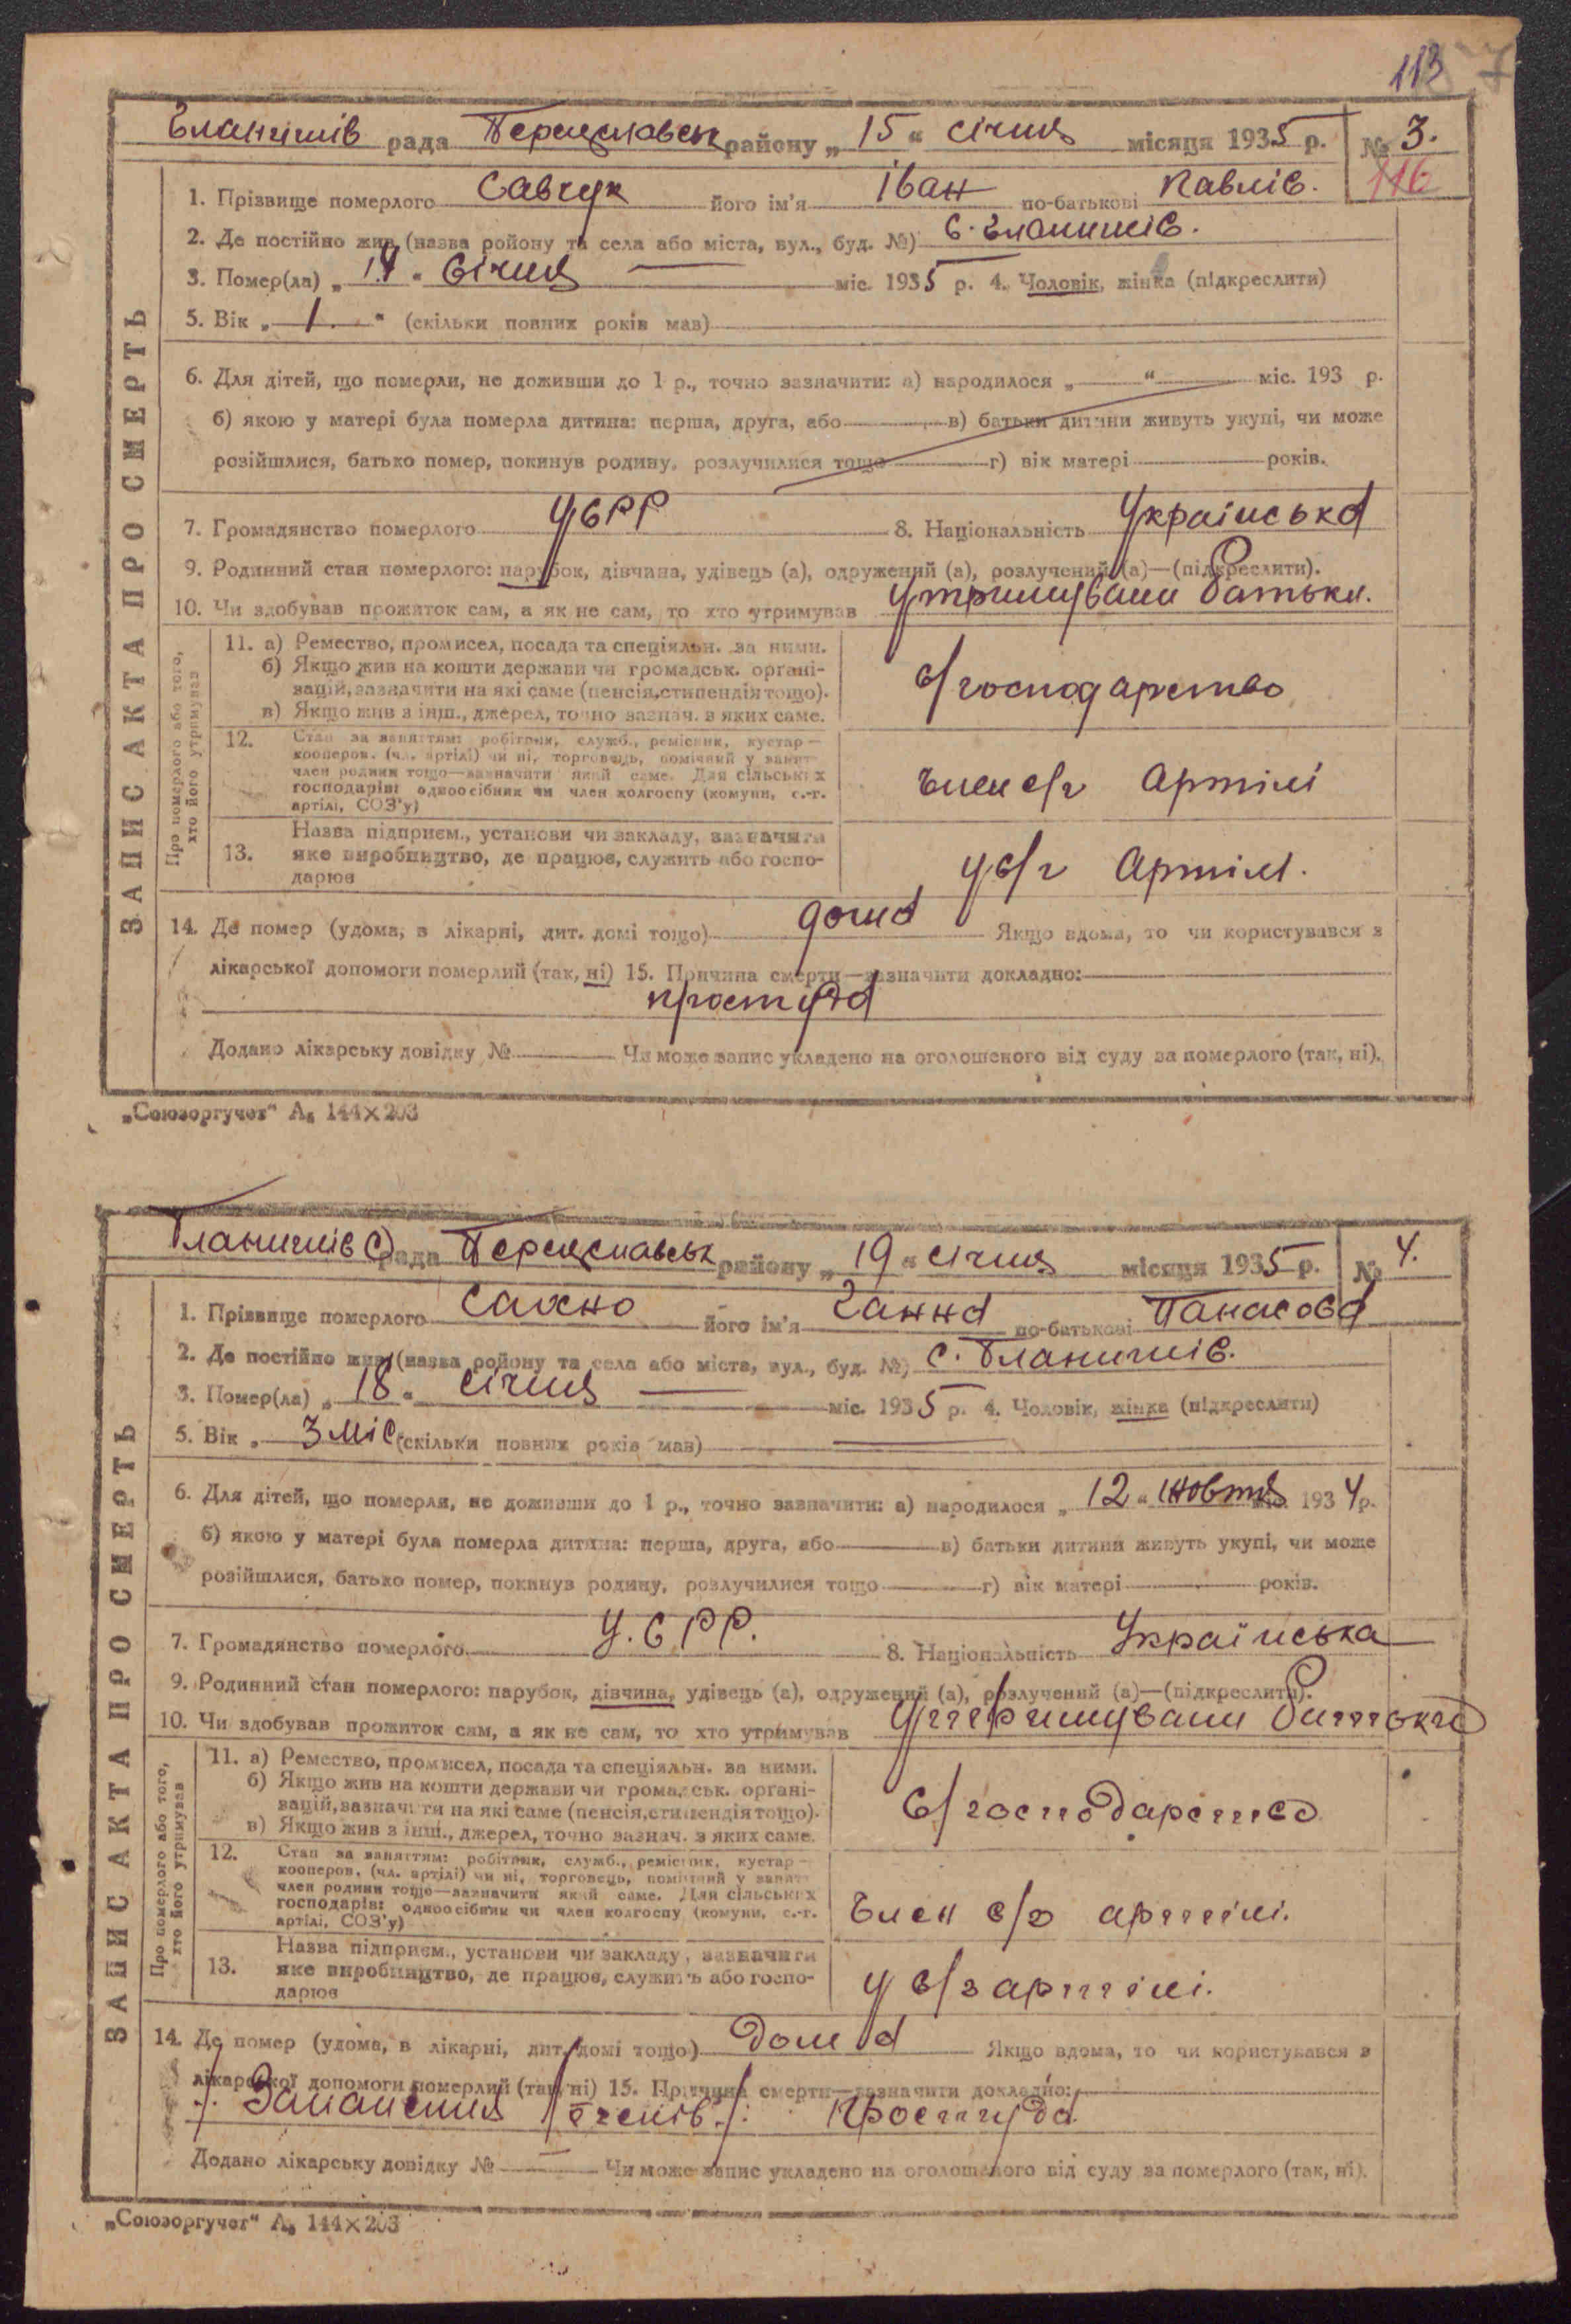 113 7
Єланишів рада Переяславськ району „ 15 “ січня місяця 1935 р. № 3.
116
1. Прізвище померлого Савчук його ім'я Іван по-батькові Павлів.
2. Де постійно жив (назва ройону та села або міста, вул., буд. №) с.
3. Помер(ла) „ 14 “ Січня — міс. 1935 р. 4. Чоловік, жінка (підкреслити)
5. Вік „ 1. “ (скільки повних років мав)
6. Для дітей, що померли, не доживши до 1 р., точно зазначити: а) народилося „ “ міс. 193 р.
б) якою у матері була померла дитина: перша, друга, або в) батьки дитини живуть укупі, чи може
розійшлися, батько помер, покинув родину, розлучилися тощо г) вік матері років.
7. Громадянство померлого УСРР 8. Національність Українська
9. Родинний стан померлого: парубок, дівчина, удівець (а), одружений (а), розлучений (а)—(підкреслити).
10. Чи здобував прожиток сам, а як не сам, то хто утримував Утримували батьки.
ЗАПИС АКТА ПРО СМЕРТЬ
Про померлого або того, хто його утримував
11. а) Ремество, промисел, посада та спеціяльн. за ними.
б) Якщо жив на кошти держави чи громадськ. органі-
зацій, зазначити на які саме (пенсія, стипендія тощо).
в) Якщо жив з інш., джерел, точно зазнач. з яких саме.
с/господарство
12. Стан за заняттям: робітник, служб., ремісник, кустар—
кооперов. (чл. артілі) чи ні, торговець, помічний у занят
член родини тощо—зазначити який саме. Для сільських
господарів: одноосібник чи член колгоспу (комуни, с.-г.
артілі, СОЗ'у)
Член с/г Артілі
13. Назва підприєм., установи чи закладу, зазначити
яке виробництво, де працює, служить або госпо-
дарює
у с/г Артілі.
14. Де помер (удома, в лікарні, дит. домі тощо) дома Якщо вдома, то чи користувався з
лікарської допомоги померлий (так, ні) 15. Причина смерти—зазначити докладно:
простуда
Додано лікарську довідку № Чи може запис укладено на оголошеного від суду за померлого (так, ні).
„Союзоргучет“ А₅ 144×203
с рада Переяславськ району „ 19 “ січня місяця 1935 р. № 4.
1. Прізвище померлого Сахно його ім'я Ганна по-батькові Панасова
2. Де постійно жив (назва ройону та села або міста, вул., буд. №) с.
3. Помер(ла) „ 18 “ січня — міс. 1935 р. 4. Чоловік, жінка (підкреслити)
5. Вік „ 3 міс. (скільки повних років мав)
6. Для дітей, що померли, не доживши до 1 р., точно зазначити: а) народилося „ 12 “ жовтня міс. 1934 р.
б) якою у матері була померла дитина: перша, друга, або в) батьки дитини живуть укупі, чи може
розійшлися, батько помер, покинув родину, розлучилися тощо г) вік матері років.
7. Громадянство померлого У.СРР. 8. Національність Українська
9. Родинний стан померлого: парубок, дівчина, удівець (а), одружений (а), розлучений (а)—(підкреслити).
10. Чи здобував прожиток сам, а як не сам, то хто утримував Утримували батьки
ЗАПИС АКТА ПРО СМЕРТЬ
Про померлого або того, хто його утримував
11. а) Ремество, промисел, посада та спеціяльн. за ними.
б) Якщо жив на кошти держави чи громадськ. органі-
зацій, зазначити на які саме (пенсія, стипендія тощо).
в) Якщо жив з інш., джерел, точно зазнач. з яких саме.
С/господарство
12. Стан за заняттям: робітник, служб., ремісник, кустар—
кооперов. (чл. артілі) чи ні, торговець, помічний у занят
член родини тощо—зазначити який саме. Для сільських
господарів: одноосібник чи член колгоспу (комуни, с.-г.
артілі, СОЗ'у)
Член с/г артілі.
13. Назва підприєм., установи чи закладу, зазначити
яке виробництво, де працює, служить або госпо-
дарює
у с/г артілі.
14. Де помер (удома, в лікарні, дит. домі тощо) дома Якщо вдома, то чи користувався з
лікарської допомоги померлий (так, ні) 15. Причина смерти—зазначити докладно:
Запалення Простуда
Додано лікарську довідку № — Чи може запис укладено на оголошеного від суду за померлого (так, ні).
„Союзоргучет“ А₅ 144×203